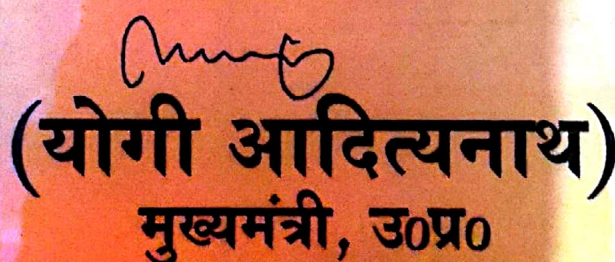 (योगी आदित्यनाथ)
मुख्यमंत्री, उ०प्र०